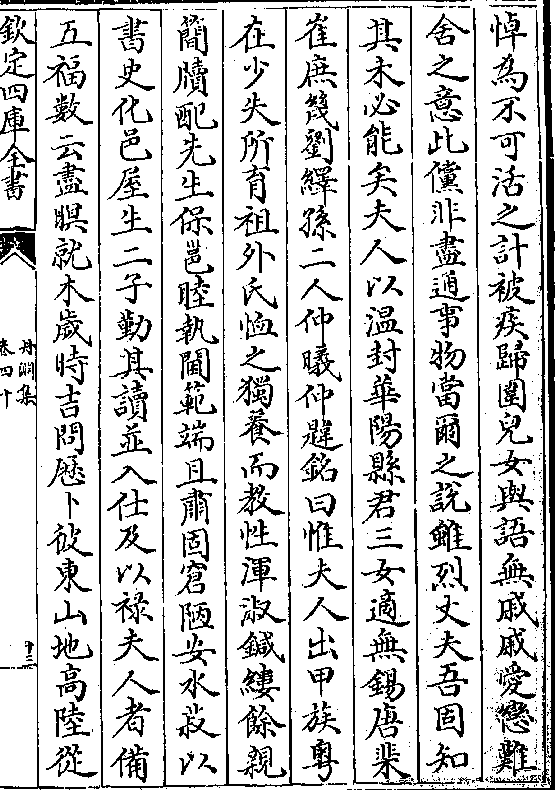 悼為不可活之計被疾歸圍兒女與語無戚戚愛戀難
舍之意此儻非盡通事物當爾之說雖烈丈夫吾固知
其未必能矣夫人以溫封華陽縣君三女適無錫唐棐
崔庶幾劉繹孫二人仲曦仲韙銘曰惟夫人出甲族粵
在少失所育祖外氏恤之獨養而教性渾淑鍼縷餘親
簡牘配先生保邕睦執閫範端且肅固窘陋安水菽以
書史化邑屋生二子勤其讀並入仕及以祿夫人者備
五福數云盡瞑就木歲時吉問歷卜彼東山地高陸從
欽定四庫全書
丹淵集
卷四十
十三